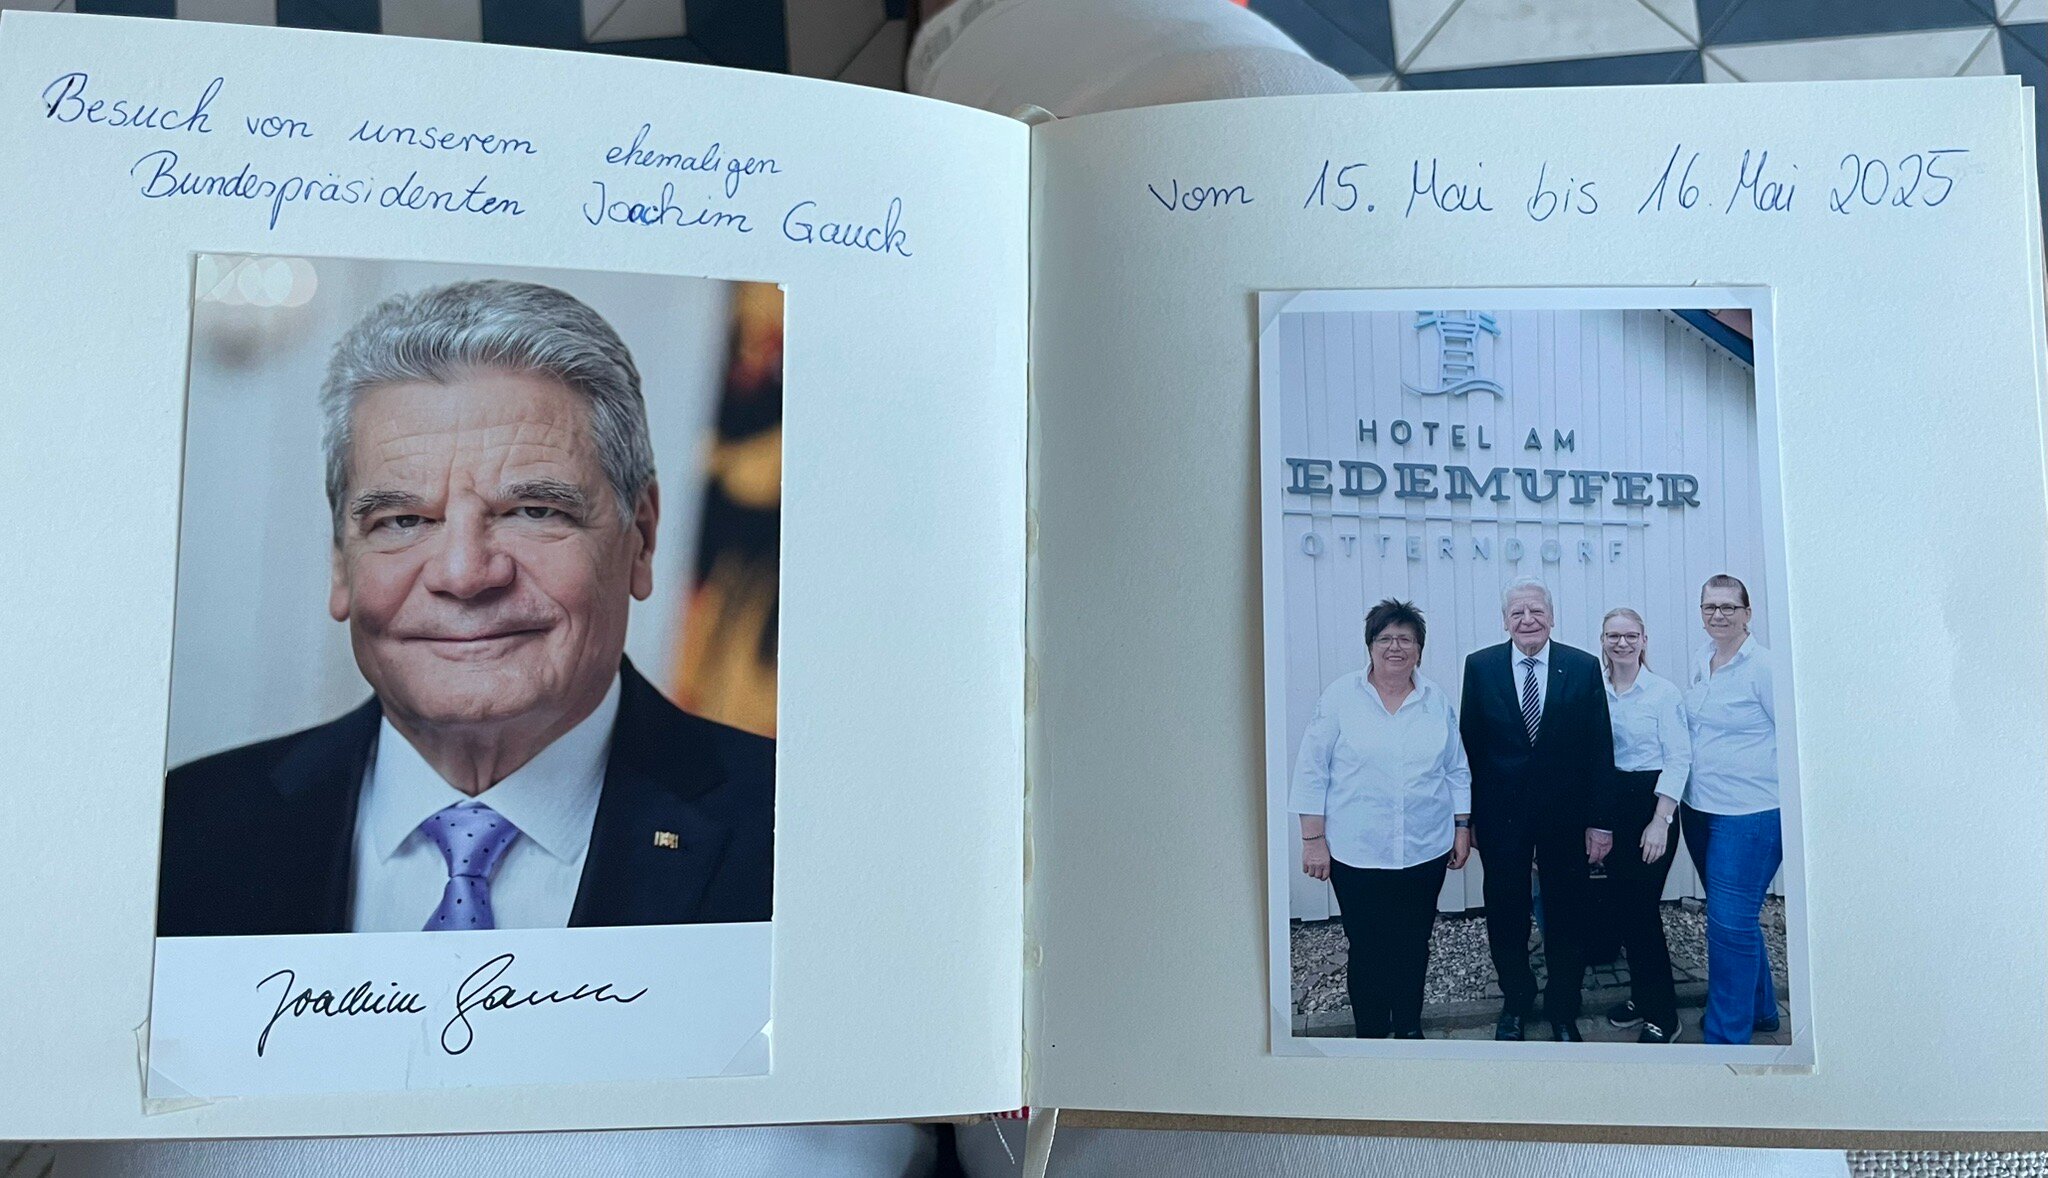 Besuch von unserem ehemaligen
Bundespräsidenten Joachim Gauck
Joachim Gauck
vom 15. Mai bis 16. Mai 2025
HOTEL AM
MEDEMUFER
OTTERNDORF